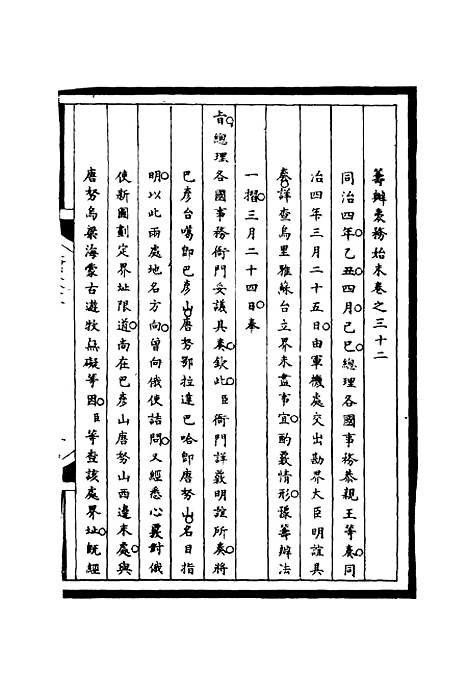 籌辦夷務始末卷之三十二
同治四年乙丑四月己巳總理各國事務恭親王等奏同
治四年三月二十五日由軍機處交出勘界大臣明誼具
奏詳查烏里雅蘇台立界未盡事宜酌覈情形豫籌辦法
一摺三月二十四日奉
旨總理各國事務衙門妥議具奏欽此臣衙門詳覈明誼所奏將
巴彥台噶卽巴彥山唐努鄂拉達巴哈卽唐努山名目指
明以此兩處地名方向曾向俄使詰問又經悉心覈對俄
使新圖劃定界址限道尚在巴彥山唐努山西邊末處與
唐努烏粱海蒙古遊牧無礙等因臣等查該處界址旣經